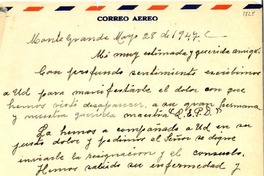 CORREO AEREO
Monte Grande Mayo 28 de 1947
Mi muy estimada y querida amiga:
Con profundo sentimiento escribimos
a Ud para manifestarle el dolor con que
hemos visto desaparecer, a su gran hermana
y nuestra querida maestra Q.E.P.D.
La hemos acompañado a Ud en su
justo dolor y pedimos al Señor se digne
enviarle la resignación y el consuelo.
Hemos sabido su enfermedad y